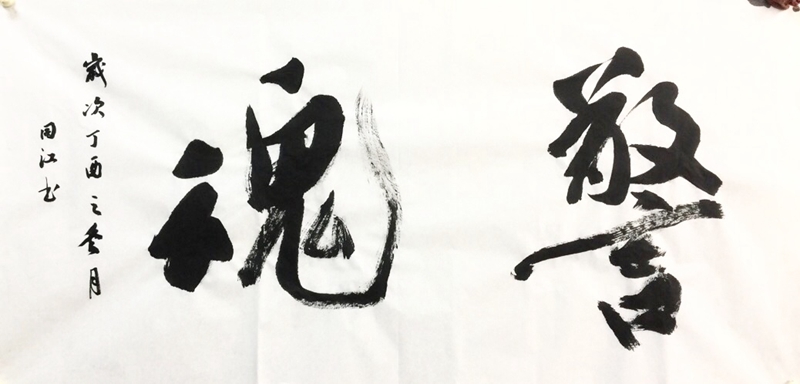 警魂
歲次丁酉之冬月
江书